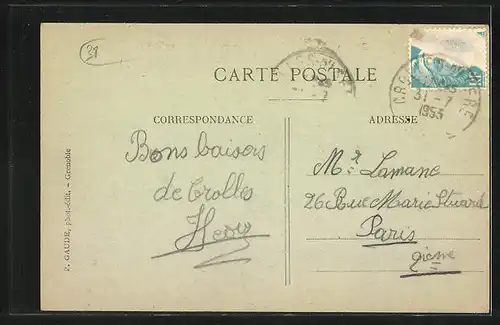 31
CARTE POSTALE
CORRESPONDANCE
ADRESSE
Bons baisers
de Crolles
Mr. Lamane
26 Rue Marie Stuard
Paris
31-7
1953
P. GAUDE, phot.-édit. - Grenoble